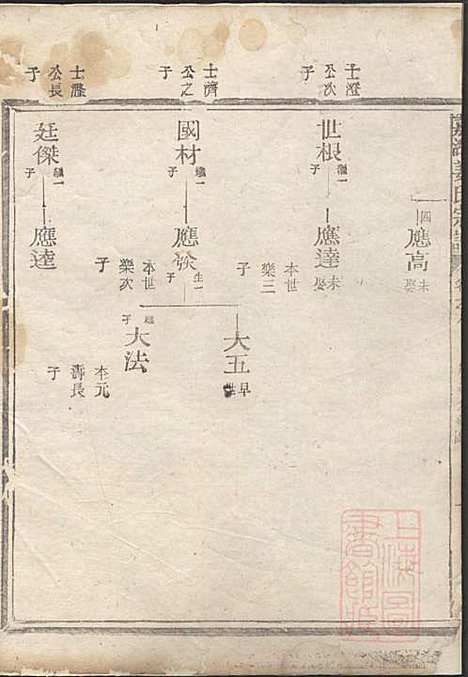 四
應高
未娶
士澄
公次
子
世根
繼一
子
應達
未娶
本世
樂三
子
士濟
公之
子
國材
繼一
子
應燚
生一
子
本世
樂次
子
大五
早
大法
繼
子
本元
壽長
子
士澄
公長
子
廷傑
繼一
子
應逵
上海圖
書館藏